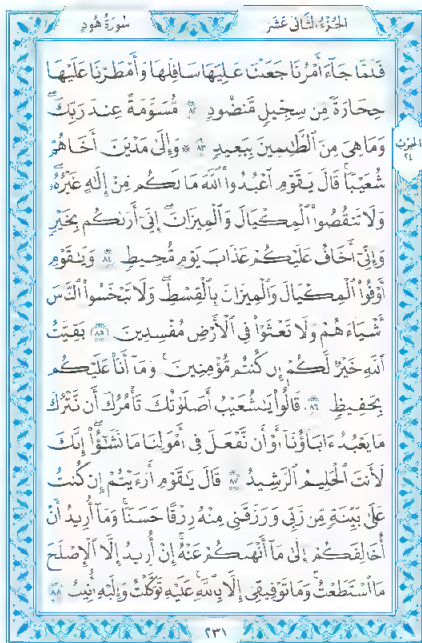 سُورَةُ هُودٍ
الجُزْءُ الثَّانِي عَشَرَ
فَلَمَّا جَآءَ أَمْرُنَا جَعَلْنَا عَٰلِيَهَا سَافِلَهَا وَأَمْطَرْنَا عَلَيْهَا
حِجَارَةً مِّن سِجِّيلٍ مَّنضُودٍ ٨٢ مُّسَوَّمَةً عِندَ رَبِّكَۖ
وَمَا هِيَ مِنَ ٱلظَّٰلِمِينَ بِبَعِيدٍ ٨٣ ۞ وَإِلَىٰ مَدْيَنَ أَخَاهُمْ
الحِزْب ٢٤
شُعَيْبًاۚ قَالَ يَٰقَوْمِ ٱعْبُدُوا۟ ٱللَّهَ مَا لَكُم مِّنْ إِلَٰهٍ غَيْرُهُۥۖ
وَلَا تَنقُصُوا۟ ٱلْمِكْيَالَ وَٱلْمِيزَانَۚ إِنِّىٓ أَرَىٰكُم بِخَيْرٍ
وَإِنِّىٓ أَخَافُ عَلَيْكُمْ عَذَابَ يَوْمٍ مُّحِيطٍ ٨٤ وَيَٰقَوْمِ
أَوْفُوا۟ ٱلْمِكْيَالَ وَٱلْمِيزَانَ بِٱلْقِسْطِۖ وَلَا تَبْخَسُوا۟ ٱلنَّاسَ
أَشْيَآءَهُمْ وَلَا تَعْثَوْا۟ فِى ٱلْأَرْضِ مُفْسِدِينَ ٨٥ بَقِيَّتُ
ٱللَّهِ خَيْرٌ لَّكُمْ إِن كُنتُم مُّؤْمِنِينَۚ وَمَآ أَنَا۠ عَلَيْكُم
بِحَفِيظٍ ٨٦ قَالُوا۟ يَٰشُعَيْبُ أَصَلَوٰتُكَ تَأْمُرُكَ أَن نَّتْرُكَ
مَا يَعْبُدُ ءَابَآؤُنَآ أَوْ أَن نَّفْعَلَ فِىٓ أَمْوَٰلِنَا مَا نَشَٰٓؤُا۟ۖ إِنَّكَ
لَأَنتَ ٱلْحَلِيمُ ٱلرَّشِيدُ ٨٧ قَالَ يَٰقَوْمِ أَرَءَيْتُمْ إِن كُنتُ
عَلَىٰ بَيِّنَةٍ مِّن رَّبِّى وَرَزَقَنِى مِنْهُ رِزْقًا حَسَنًاۚ وَمَآ أُرِيدُ أَنْ
أُخَالِفَكُمْ إِلَىٰ مَآ أَنْهَىٰكُمْ عَنْهُۚ إِنْ أُرِيدُ إِلَّا ٱلْإِصْلَٰحَ
مَا ٱسْتَطَعْتُۚ وَمَا تَوْفِيقِىٓ إِلَّا بِٱللَّهِۚ عَلَيْهِ تَوَكَّلْتُ وَإِلَيْهِ أُنِيبُ ٨٨
٢٣١